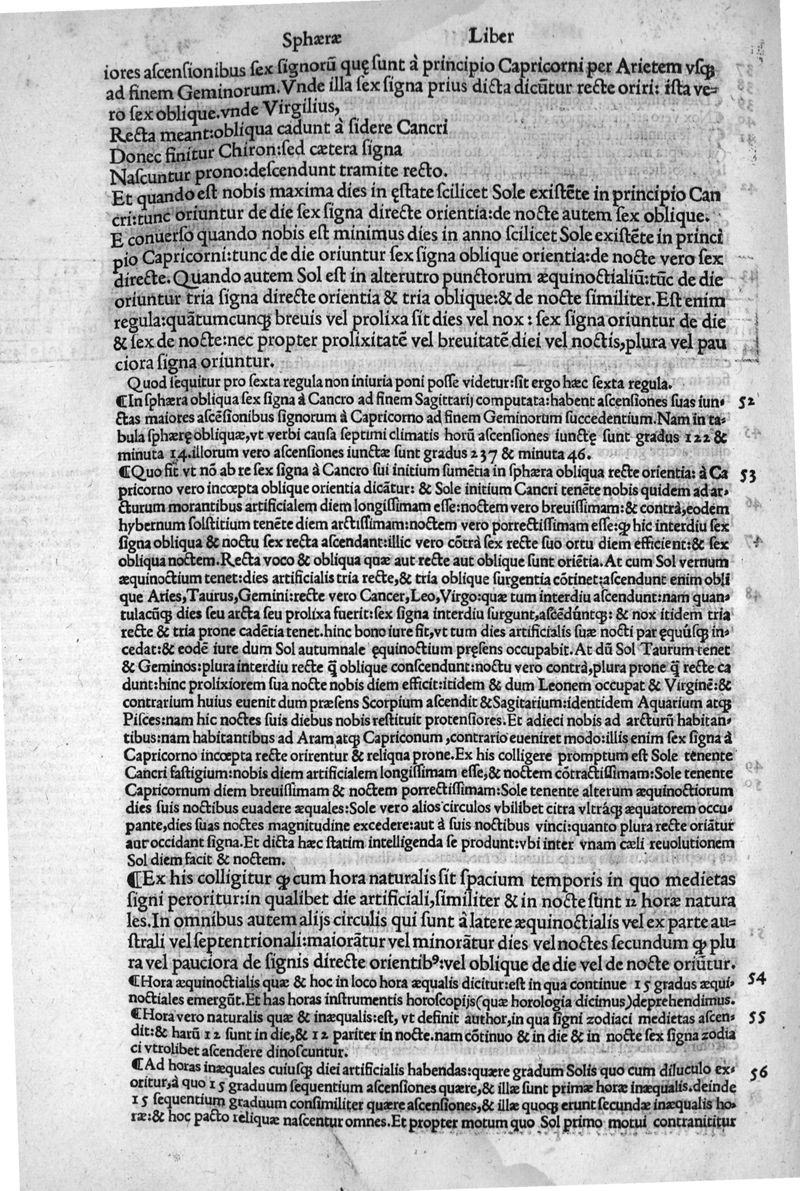 Sphæræ Liber
iores ascensionibus sex signorū quę sunt à principio Capricorni per Arietem vsq́
ad finem Geminorum. Vnde illa sex signa prius dicta dicūtur recte oriri: ista ve-
ro sex oblique. vnde Virgilius,
Recta meant: obliqua cadunt à sidere Cancri
Donec finitur Chiron: sed cætera signa
Nascuntur prono: descendunt tramite recto.
Et quando est nobis maxima dies in ęstate scilicet Sole existēte in principio Can
cri: tunc oriuntur de die sex signa directe orientia: de nocte autem sex oblique.
E conuerso quando nobis est minimus dies in anno scilicet Sole existēte in princi
pio Capricorni: tunc de die oriuntur sex signa oblique orientia: de nocte vero sex
directe. Quando autem Sol est in alterutro punctorum æquinoctialiū: tūc de die
oriuntur tria signa directe orientia & tria oblique: & de nocte similiter. Est enim
regula: quātumcunq́ breuis vel prolixa sit dies vel nox: sex signa oriuntur de die
& sex de nocte: nec propter prolixitatē vel breuitatē diei vel noctis, plura vel pau
ciora signa oriuntur.
Quod sequitur pro sexta regula non iniuria poni posse videtur: sit ergo hæc sexta regula.
¶In sphæra obliqua sex signa à Cancro ad finem Sagittarij computata: habent ascensiones suas iun- 52
ctas maiores ascēsionibus signorum à Capricorno ad finem Geminorum succedentium. Nam in ta-
bula sphærę obliquæ, vt verbi causa septimi climatis horū ascensiones iunctę sunt gradus 122 &
minuta 14. illorum vero ascensiones iunctæ sunt gradus 237 & minuta 46.
¶Quo fit vt nō ab re sex signa à Cancro sui initium sumētia in sphæra obliqua recte orientia: à Ca 53
pricorno vero incœpta oblique orientia dicātur: & Sole initium Cancri tenēte nobis quidem ad ar-
cturum morantibus artificialem diem longissimam esse: noctem vero breuissimam: & contrà, eodem
hybernum solstitium tenēte diem arctissimam: noctem vero porrectissimam esse: q́ hic interdiu sex
signa obliqua & noctu sex recta ascendant: illic vero cōtrà sex recte suo ortu diem efficient: & sex
obliqua noctem. Recta voco & obliqua quæ aut recte aut oblique sunt oriētia. At cum Sol vernum
æquinoctium tenet: dies artificialis tria recte, & tria oblique surgentia cōtinet: ascendunt enim obli
que Aries, Taurus, Gemini: recte vero Cancer, Leo, Virgo: quæ tum interdiu ascendunt: nam quan-
tulacūq́ dies seu arcta seu prolixa fuerit: sex signa interdiu surgunt, ascēdúntq́: & nox itidem tria
recte & tria prone cadētia tenet. hinc bono iure fit, vt tum dies artificialis suæ nocti par ęquúsq́ in-
cedat: & eodē iure dum Sol autumnale ęquinoctium pręsens occupabit. At dū Sol Taurum tenet
& Geminos: plura interdiu recte q̄ oblique conscendunt: noctu vero contrà, plura prone q̄ recte ca
dunt: hinc prolixiorem sua nocte nobis diem efficit: itidem & dum Leonem occupat & Virginē: &
contrarium huius euenit dum præsens Scorpium ascendit & Sagitarium: identidem Aquarium atq́
Pisces: nam hic noctes suis diebus nobis restituit protensiores. Et adieci nobis ad arcturum habitan-
tibus: nam habitantibus ad Aram atq́ Capriconum, contrario eueniret modo: illis enim sex signa à
Capricorno incœpta recte orirentur & reliqua prone. Ex his colligere promptum est Sole tenente
Cancri fastigium: nobis diem artificialem longissimam esse, & noctem cōtractissimam: Sole tenente
Capricornum diem breuissimam & noctem porrectissimam: Sole tenente alterum æquinoctiorum
dies suis noctibus euadere æquales: Sole vero alios circulos vbilibet citra vltráq́ æquatorem occu-
pante, dies suas noctes magnitudine excedere: aut à suis noctibus vinci: quanto plura recte oriātur
aut occidant signa. Et dicta hæc statim intelligenda se produnt: vbi inter vnam cæli reuolutionem
Sol diem facit & noctem.
¶Ex his colligitur q́ cum hora naturalis sit spacium temporis in quo medietas
signi peroritur: in qualibet die artificiali, similiter & in nocte sunt 12 horæ natura
les. In omnibus autem alijs circulis qui sunt à latere æquinoctialis vel ex parte au-
strali vel septentrionali: maiorātur vel minorātur dies vel noctes secundum q́ plu
ra vel pauciora de signis directe orientibꝰ: vel oblique de die vel de nocte oriūtur.
¶Hora æquinoctialis quæ & hoc in loco hora æqualis dicitur: est in qua continue 15 gradus æqui- 54
noctiales emergūt. Et has horas instrumentis horoscopijs (quæ horologia dicimus) deprehendimus.
¶Hora vero naturalis quæ & inæqualis: est, vt definit author, in qua signi zodiaci medietas ascen- 55
dit: & harū 12 sunt in die, & 12 pariter in nocte. nam cōtinuo & in die & in nocte sex signa zodia
ci vtrolibet ascendere dinoscuntur.
¶Ad horas inæquales cuiusq́ diei artificialis habendas: quære gradum Solis quo cum diluculo ex- 56
oritur, à quo 15 graduum sequentium ascensiones quære, & illæ sunt primæ horæ inæqualis. deinde
15 sequentium graduum consimiliter quære ascensiones, & illæ quoq́ erunt secundæ inæqualis ho-
ræ: & hoc pacto reliquæ nascentur omnes. Et propter motum quo Sol primo motui contranititur